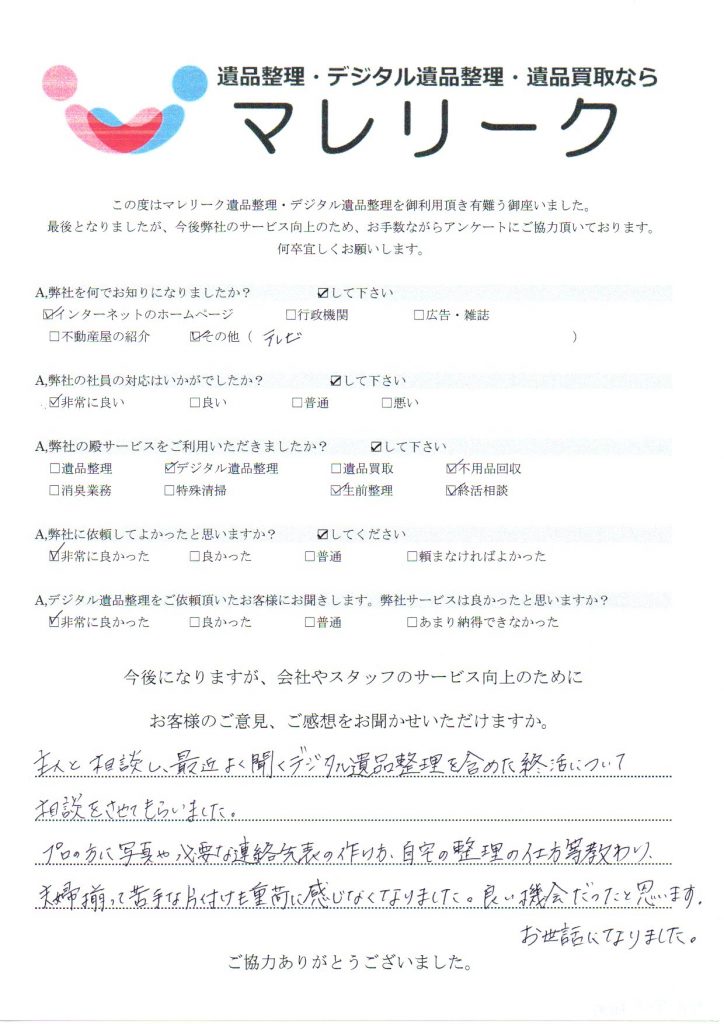 遺品整理・デジタル遺品整理・遺品買取なら
マレリーク
この度はマレリーク遺品整理・デジタル遺品整理を御利用頂き有難う御座いました。
最後となりましたが、今後弊社のサービス向上のため、お手数ながらアンケートにご協力頂いております。
何卒宜しくお願いします。
A,弊社を何でお知りになりましたか？ ☑して下さい
☑インターネットのホームページ □行政機関 □広告・雑誌
□不動産屋の紹介 ☑その他（ テレビ ）
A,弊社の社員の対応はいかがでしたか？ ☑して下さい
☑非常に良い □良い □普通 □悪い
A,弊社の殿サービスをご利用いただきましたか？ ☑して下さい
□遺品整理 ☑デジタル遺品整理 □遺品買取 ☑不用品回収
□消臭業務 □特殊清掃 ☑生前整理 ☑終活相談
A,弊社に依頼してよかったと思いますか？ ☑してください
☑非常に良かった □良かった □普通 □頼まなければよかった
A,デジタル遺品整理をご依頼頂いたお客様にお聞きします。弊社サービスは良かったと思いますか？
☑非常に良かった □良かった □普通 □あまり納得できなかった
今後になりますが、会社やスタッフのサービス向上のために
お客様のご意見、ご感想をお聞かせいただけますか。
主人と相談し、最近よく聞くデジタル遺品整理を含めた終活について
相談をさせてもらいました。
プロの方に写真や必要な連絡先表の作り方、自宅の整理の仕方等教わり、
夫婦揃って苦手な片付けも重荷に感じなくなりました。良い機会だったと思います。
お世話になりました。
ご協力ありがとうございました。